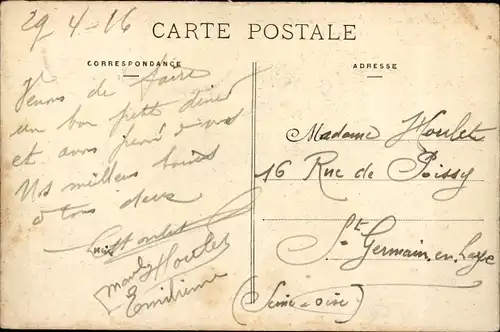 29-4-16
CARTE POSTALE
CORRESPONDANCE
ADRESSE
Venons de faire
un bon petit diner
et avons pensé à vous
Nos meilleurs baisers
à tous deux
Houlet
Houlet
Emilienne
Madame Houlet
16 Rue de Poissy
St Germain en Laye
(Seine & Oise)